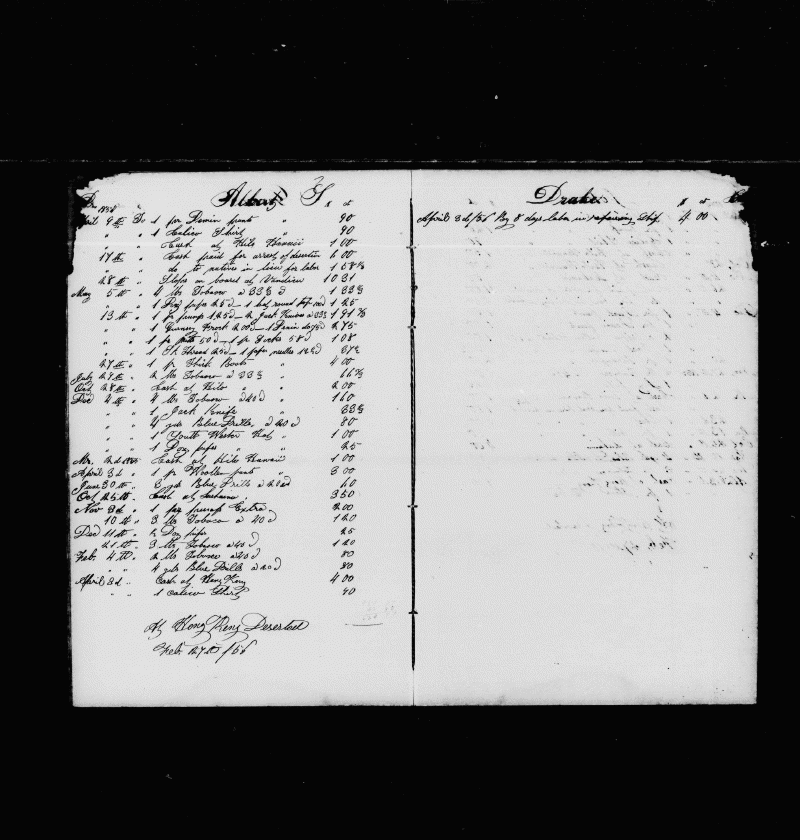 Albert S
$ ct
9th To 1 pr Denim pants " 90
" " 1 Calico Shirt " 90
" " Cash at Hilo Hawaii 1 00
17th " Cash paid for arrest of desertion 6 00
" " do to natives in lieu for labor 1 58 1/3
28th " Slops on board at Vandieu 10 31
May 5th " 4 lbs Tobacco a 33 1/3 d 1 33 1/3
" " 1 Doz pipes 25d - 1 hat round top 100d 1 25
13th " 1 pr pumps 1,25d - 2 Jack Knives a 33 1/3 1 91 2/3
" " 1 Guernsey Frock 2 00d - 1 75d 2 75
" " 1 50d - 1 pr Socks 58d 1 08
" " 1 Sk Thread 25d - 1 paper needles 12 1/2d 37 1/2
27th " 1 pr Thick Boots " 4 00
July 27th " 2 lbs Tobacco a 33 1/3 66 2/3
Oct 28th " Cash at Hilo " " 2 00
Dec 4th " 4 lbs Tobacco a 40d 1 60
" " 1 Jack Knife " 33 1/3
" " 4 yds Blue Drills a 20d 80
" " 1 South Wester Hat " 1 00
" " 1 Doz pipes 25
Mr. 2d Cash at Hilo Hawaii 1 00
April 3d " 1 pr Woollen pants " 3 00
June 30th " 3 yds Blue Drills a 20d 60
Oct 25th " Cash at 3 50
Nov 3d " 1 pr pumps Extra 2 00
10th " 3 lbs Tobacco a 40d 1 20
Dec 11th " 2 Doz pipes 25
21th " 3 lbs Tobacco a 40d 1 20
Feb. 4th " 2 lbs Tobacco a 40d 80
" " 4 yds Blue Drills a 20d 80
April 3d " Cash at Hong Kong 4 00
" " 1 Calico Shirt 90
At Hong Kong Deserted
Feb. 27th /56
Drake
$ ct
April 3d /56 By 8 days labor in repairing Ship 4 00